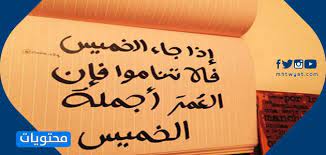 إذا جاء الخميس
فلا تناموا فإن
العمر أجملة
الخميس
mhtwyat.com
محتويات